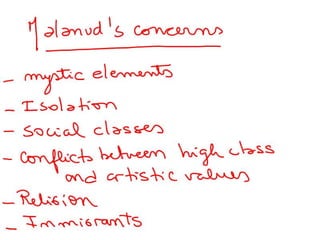 Malamud's concerns
- mystic elements
- Isolation
- social classes
- conflicts between high class
and artistic values
- Religion
- Immigrants